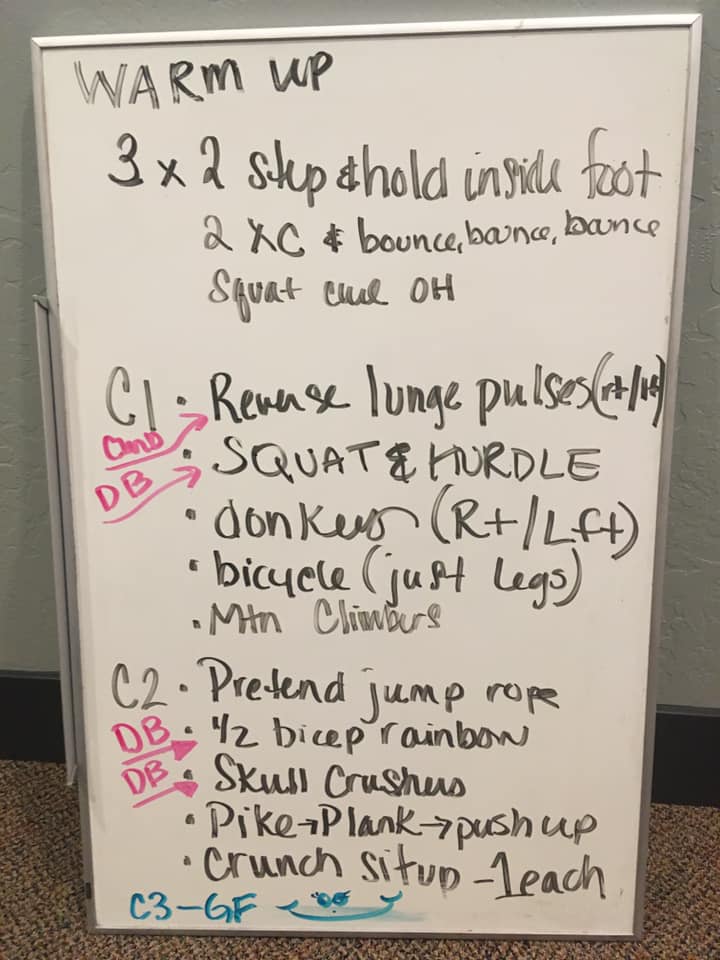 WARM UP
3 x 2 step & hold inside foot
2 XC & bounce, bounce, bounce
Squat curl OH
C1 · Reverse lunge pulses (rt/lft)
DB → · SQUAT & HURDLE
· donkeys (Rt/Lft)
· bicycle (just legs)
· Mtn Climbers
C2 · Pretend jump rope
DB → · 1/2 bicep rainbow
DB → · Skull Crushers
· Pike → Plank → push up
· Crunch situp - 1 each
C3 - GF